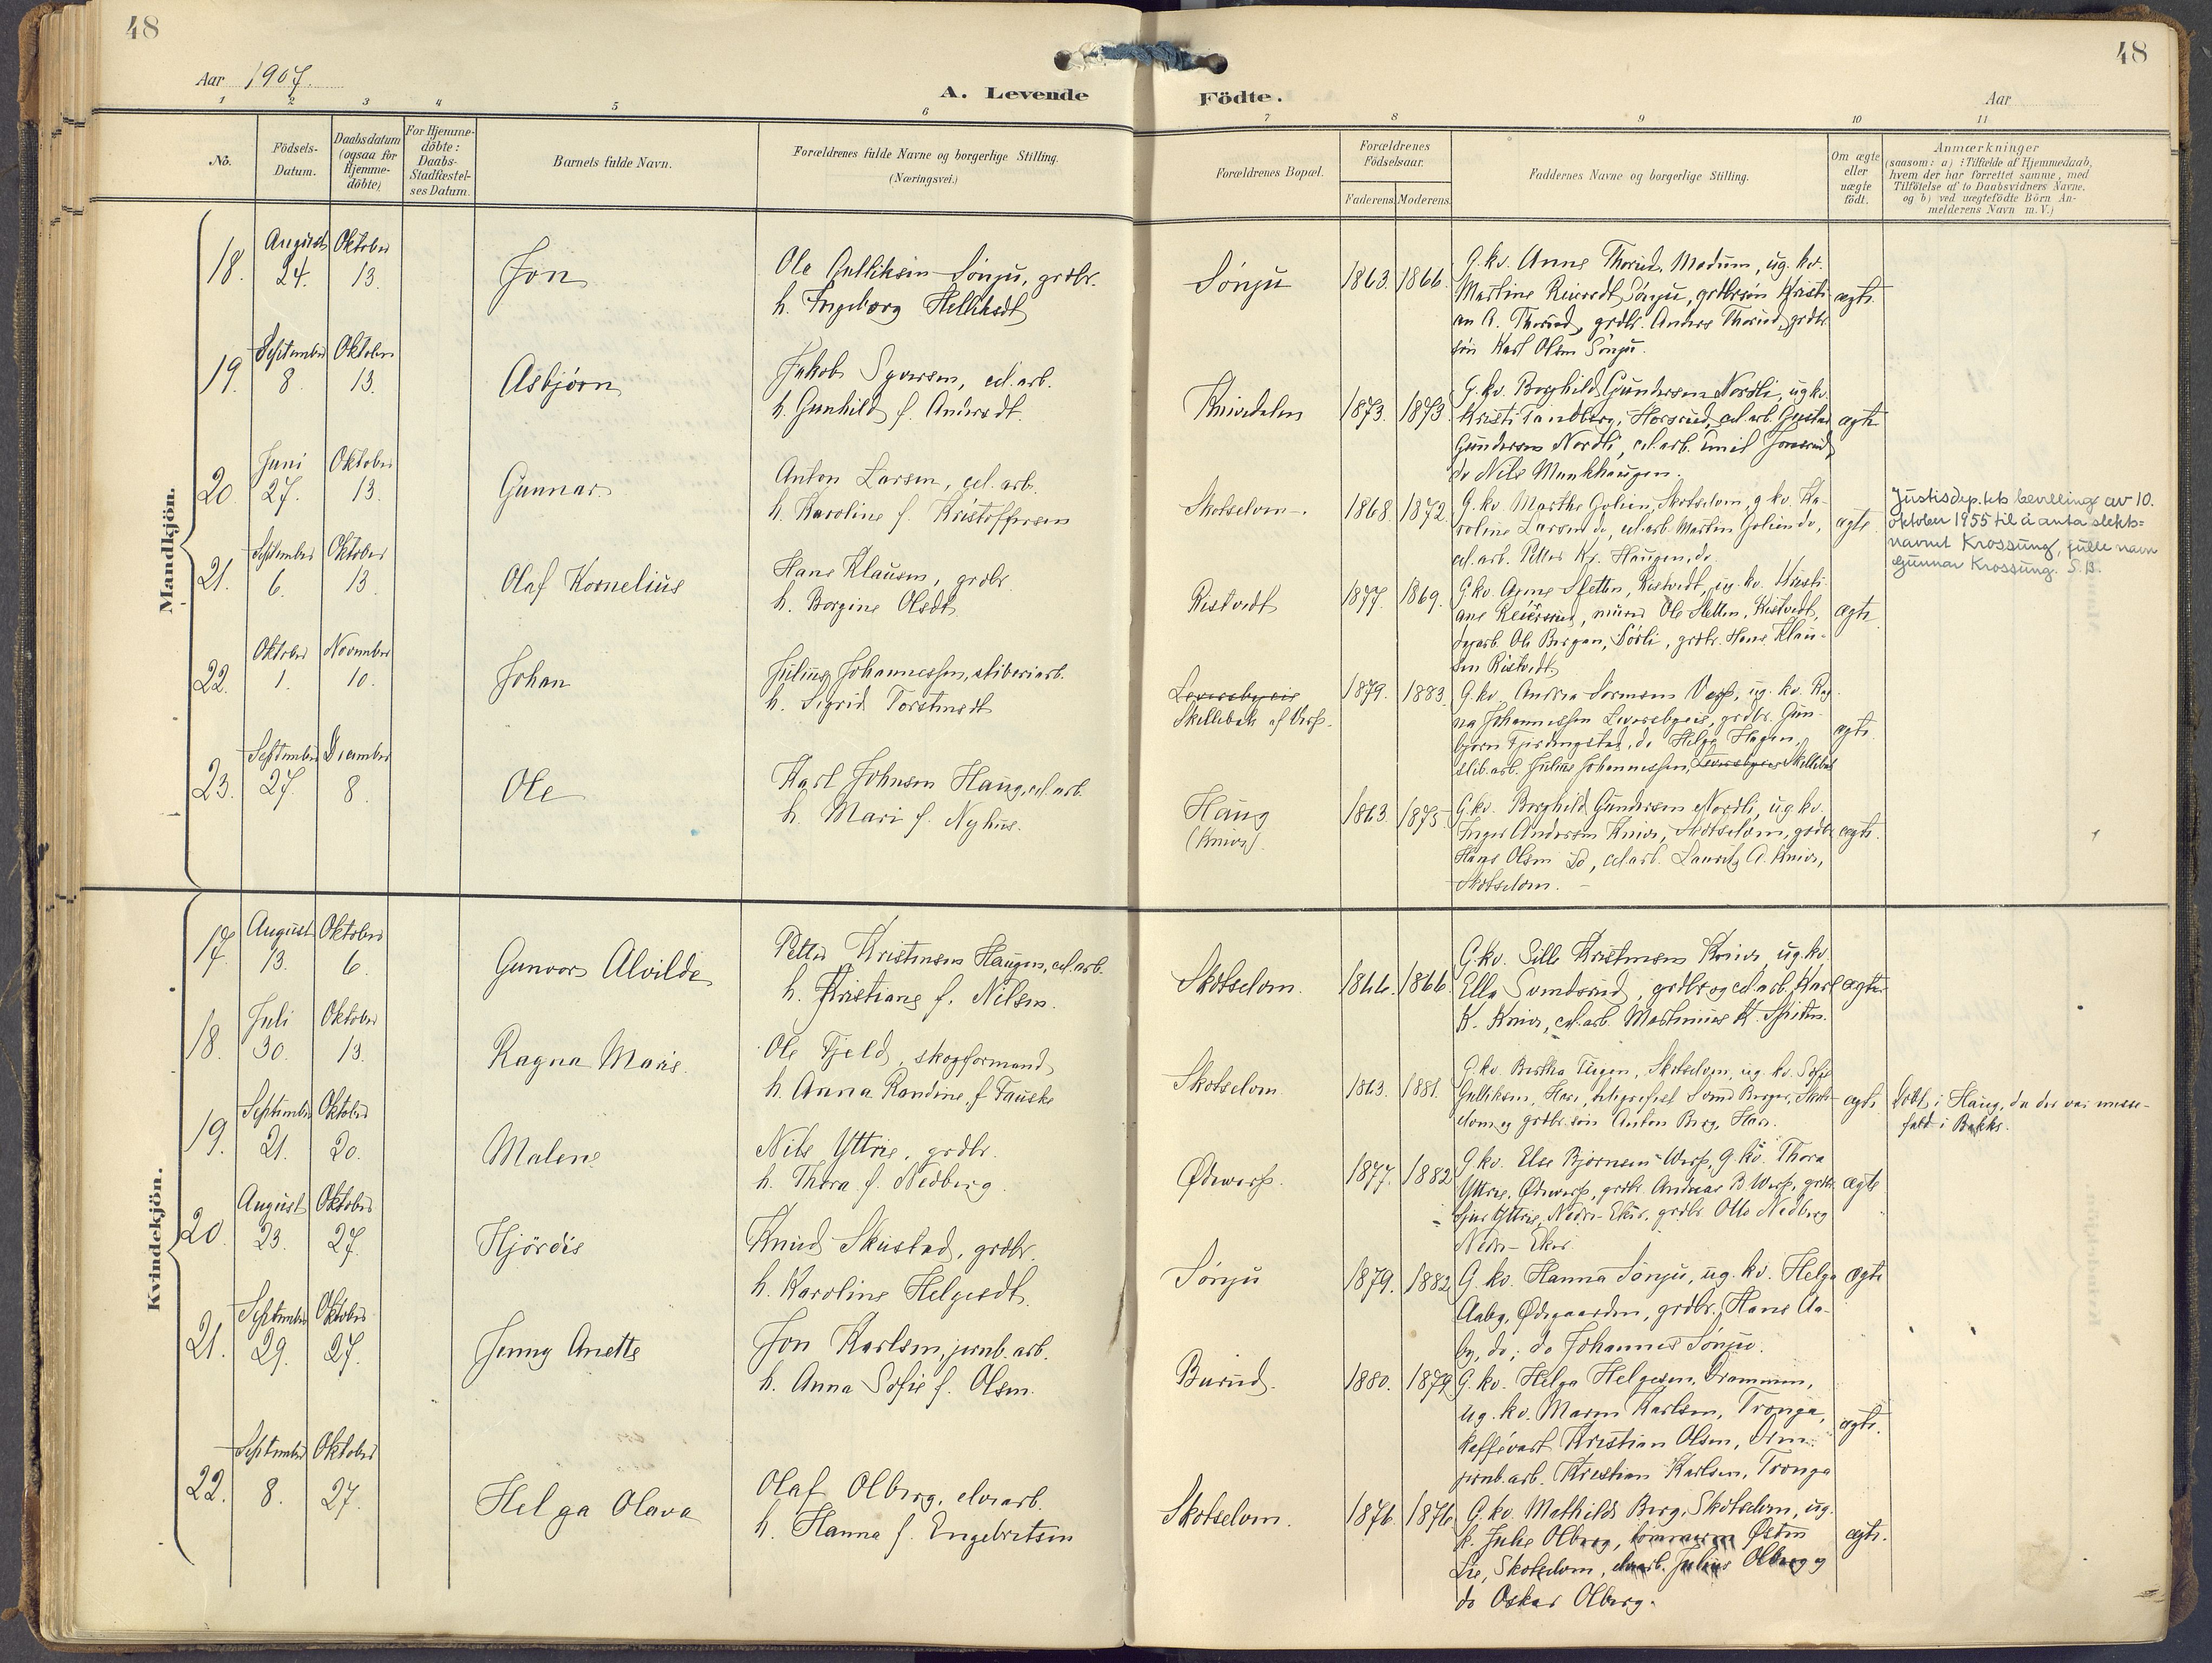 48
48
Aar 1907.
A. Levende Födte.
Aar
1 2 3 4 5 6 7 8 9 10 11
No.
Födsels-Datum.
Daabsdatum (ogsaa for Hjemme-döbte)
For Hjemme-döbte: Daabs-Stadfæstel-ses Datum.
Barnets fulde Navn.
Forældrenes fulde Navne og borgerlige Stilling.
(Næringsvei.)
Forældrenes Bopæl.
Forældrenes Födselsaar.
Faderens. Moderens.
Faddernes Navne og borgerlige Stilling.
Om ægte eller uægte födt.
Anmærkninger
(saasom: a) i Tilfælde af Hjemmedaab,
hvem der har forrettet samme, med
Tilföielse af to Daabsvidners Navne,
og b) ved uægtefödte Börn An-
melderens Navn m. V.)
Mandkjön.
18. August 24. Oktober 13. Jon
Ole Gulliksen Sönju, grdbr.
h. Ingeborg Helliksdt
Sönju 1863. 1866.
G.kv. Anne Thorud, Modum, ug. kv.
Martine Reiersdt Sönju, grdbrsön Kristi-
an A. Thorud, grdbr. Anders Thorud, grdbr.
sön Karl Olsen Sönju.
ægte
19. September 8. Oktober 13. Asbjörn
Jakob Syversen, cel. arb.
h. Gunhild f. Andersdt.
Knivedalen 1873. 1873
G.kv. Borghild Gundersen Nordli, ug kv.
Kristi Tandberg, Horsrud, cel. arb. Gustav
Gundersen Nordli, cel. arb. Emil
do Nils Munkhaugen.
ægte
20. Juni 27. Oktober 13. Gunnar
Anton Larsen, cel. arb.
h. Karoline f. Kristoffersen
Skotselven. 1868. 1872.
G.kv. Marthe Golien, Skotselven, g kv. Ka-
roline Larsen do, cel. arb Martin Golien do,
cel. arb. Petter Kr. Haugen, do.
ægte
Justisdep.tets bevilling av 10.
oktober 1955 til å anta slekts-
navnet Krossung, fulle navn
Gunnar Krossung. S.B.
21. September 6. Oktober 13. Olaf Kornelius
Hans Klausen, grdbr.
h. Borgine Olsdt.
Ristvedt 1877. 1869.
G.kv. Agnes Sletten, Ristvedt, ug. kv. Kristi-
ane Reiersrud, murer Ole Sletten, Ristvedt,
dagarb. Ole Bergan, Sörli, grdbr. Hans Klau-
sen Ristvedt
ægte
22. Oktober 1. November 10. Johan
Julius Johannessen, sliberiarb.
h. Sigrid Torstensdt
Leversbyeie
Skillebæk af Verp. 1879. 1883.
G.kv. Andrea Sörensen Verp, ug. kv. Rag-
na Johannessen Leversbyeie, grdbr. Gun-
björn Fjerdingstad, do Helge Hagen,
slib. arb. Julius Johannessen, Leversbyeie Skillebæk
ægte.
23. September 27. December 8. Ole
Karl Johnsen Haug, cel. arb.
h. Mari f. Nyhus.
Haug
(Kniver). 1863. 1875
G.kv. Borghild Gundersen Nordli, ug kv.
Inger Andersen Kniver, Skotselven, grdbr
Hans Olsen do, cel. arb. Lauritz A. Kniver,
Skotselven.
ægte.
Kvindekjön.
17. August 13. Oktober 6. Gunvor Alvilde
Petter Kristensen Haugen, cel. arb.
h. Kristiane f. Nilsen.
Skotselven. 1866. 1866.
G.kv. Sille Kristensen Kniver, ug. kv.
Ella Svendsrud, grdbr og cel. arb. Karl
K. Kniver, cel. arb. Martinius K.
ægte
18. Juli 30. Oktober 13. Ragna Marie.
Ole Fjeld, skogformand
h. Anna Randine, f. Fauske
Skotselven 1863. 1881.
G.kv. Bertha Teigen, Skotselven, ug. kv. Sofie
Gulliksen, Hære, telegrafist Svend Berger, Skots-
elven og grdbr. sön Anton Berg, Hære.
ægte
Döbt i Haug, da der var messe-
fald i Bakke.
19. September 21. Oktober 20. Malene
Nils Yttrie, grdbr.
h. Thora f. Nedberg.
Ødeverp. 1877. 1882
G.kv. Else Bjørnsen Verp, G. kv. Thora
Yttrie, Ødeverp, grdbr. Andreas B. Verp, grdbr.
Yttrie, Nedre-Eker, grdbr. Otto Nedberg
Nedre-Eker.
ægte
20. August 23. Oktober 27. Hjördis
Knud Skistad, grdbr.
h. Karoline Helgesdt.
Sönju 1879. 1882
G.kv. Hanna Sönju, ug. kv. Helga
Aaby, Ødegaarden, grdbr. Hans Aa-
by, do; do Johannes Sönju.
ægte
21. September 29. Oktober 27. Jenny Anette
Jon Karlsen, jernb. arb.
h. Anna Sofie f. Olsen.
Burud. 1880. 1879.
G.kv. Helga Helgesen, Drammen,
ug. kv. Maren Karlsen, Tronga,
kaffévært Kristian Olsen, Drm.
jernb. arb. Kristian Karlsen, Tronga
ægte.
22. September 8. Oktober 27. Helga Olava
Olaf Olberg, elvearb.
h. Hanna f. Engebretsen
Skotselven. 1876. 1876.
G.kv. Mathilde Berg, Skotselven, ug.
k. Julie Olberg, Østen
Lie, Skotselven, elvearb. Julius Olberg og
do Oskar Olberg.
ægte.